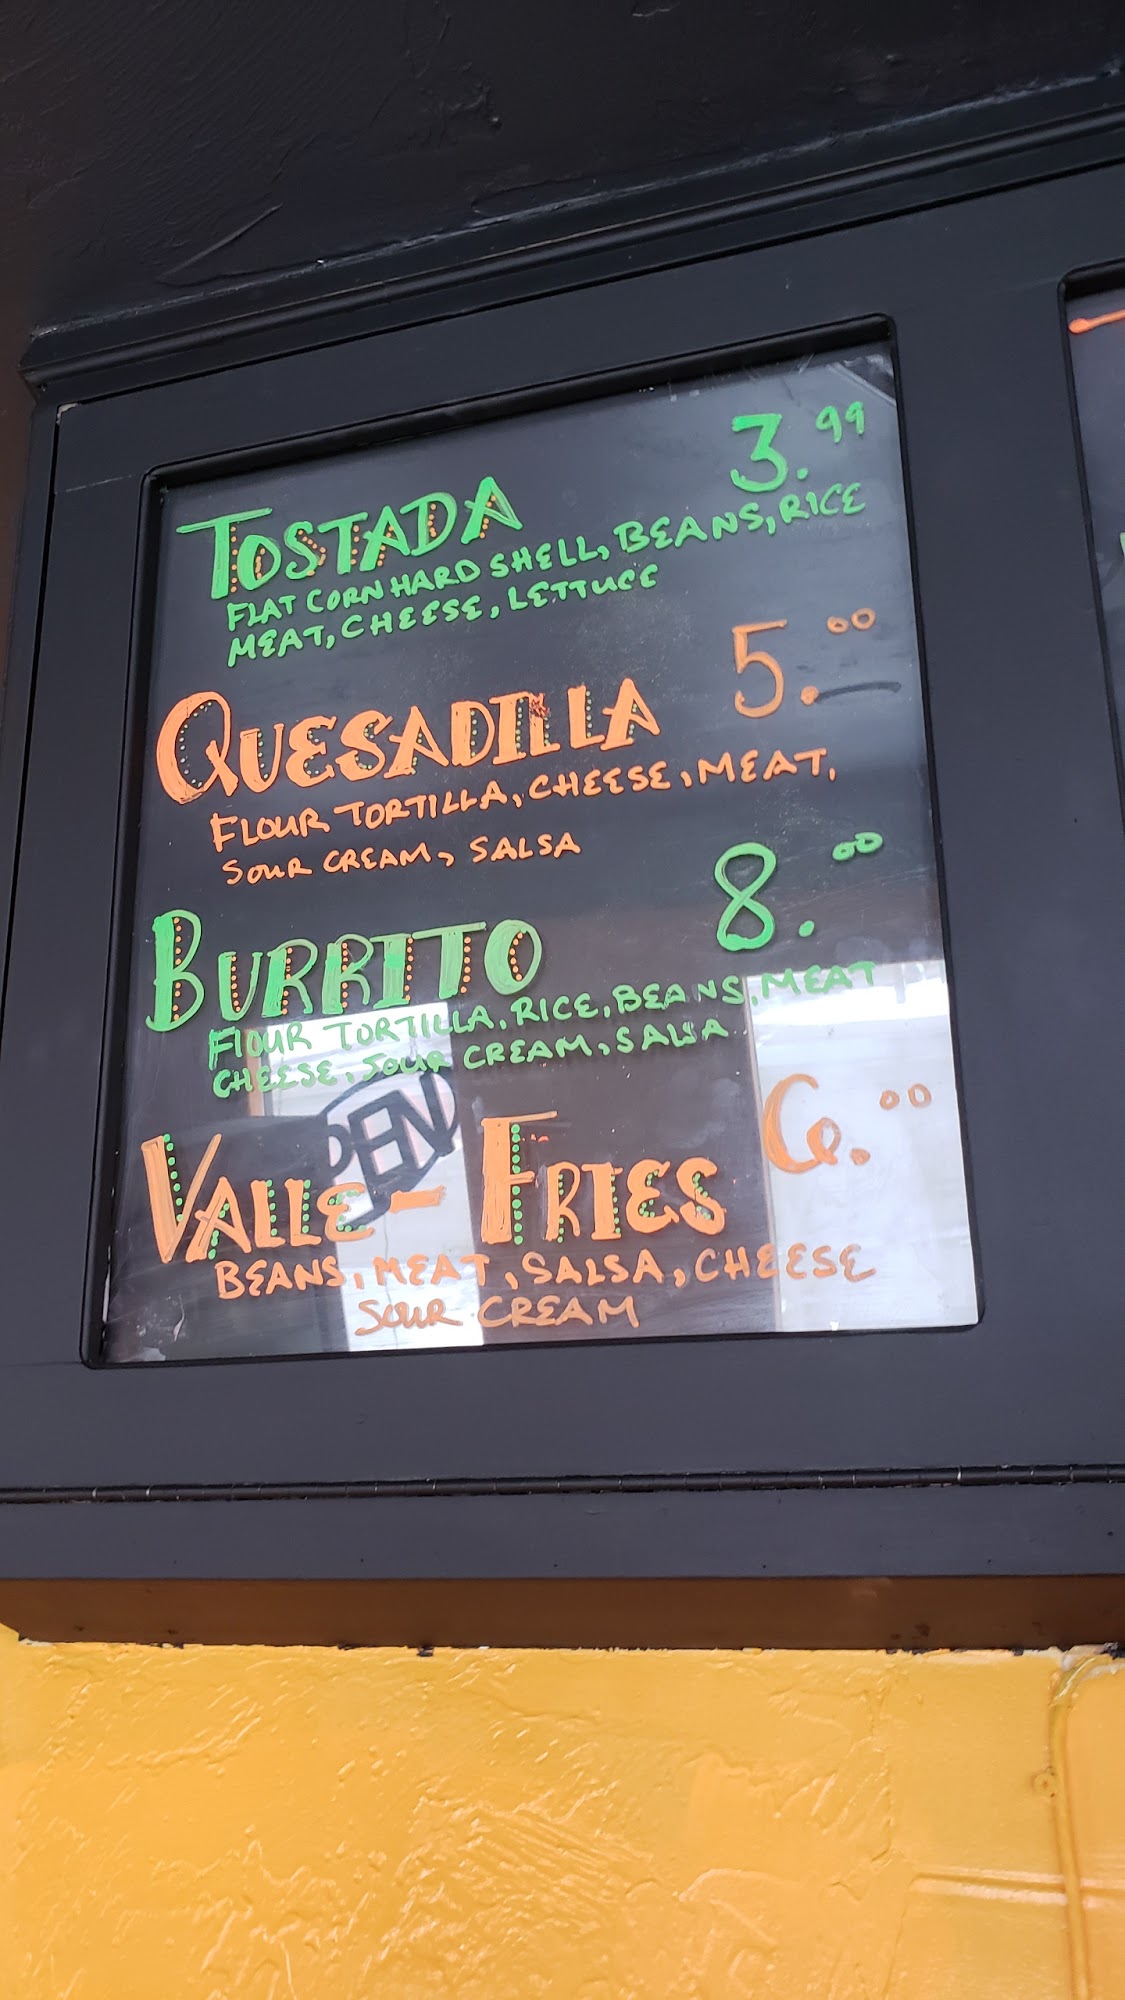 TOSTADA 3.99
FLAT CORN HARD SHELL, BEANS, RICE
MEAT, CHEESE, LETTUCE
QUESADILLA 5.00
FLOUR TORTILLA, CHEESE, MEAT,
SOUR CREAM, SALSA
BURRITO 8.00
FLOUR TORTILLA, RICE, BEANS, MEAT
CHEESE, SOUR CREAM, SALSA
VALLE-FRIES 6.00
BEANS, MEAT, SALSA, CHEESE
SOUR CREAM